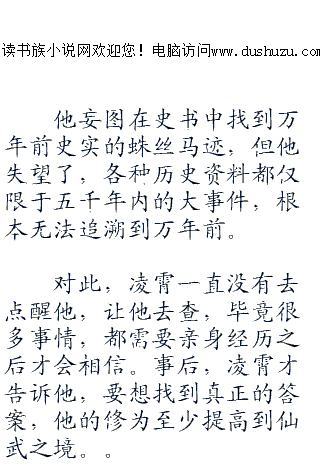 读书族小说网欢迎您！电脑访问www.dushuzu.com
他妄图在史书中找到万
年前史实的蛛丝马迹，但他
失望了，各种历史资料都仅
限于五千年内的大事件，根
本无法追溯到万年前。
对此，凌霄一直没有去
点醒他，让他去查，毕竟很
多事情，都需要亲身经历之
后才会相信。事后，凌霄才
告诉他，要想找到真正的答
案，他的修为至少提高到仙
武之境。。